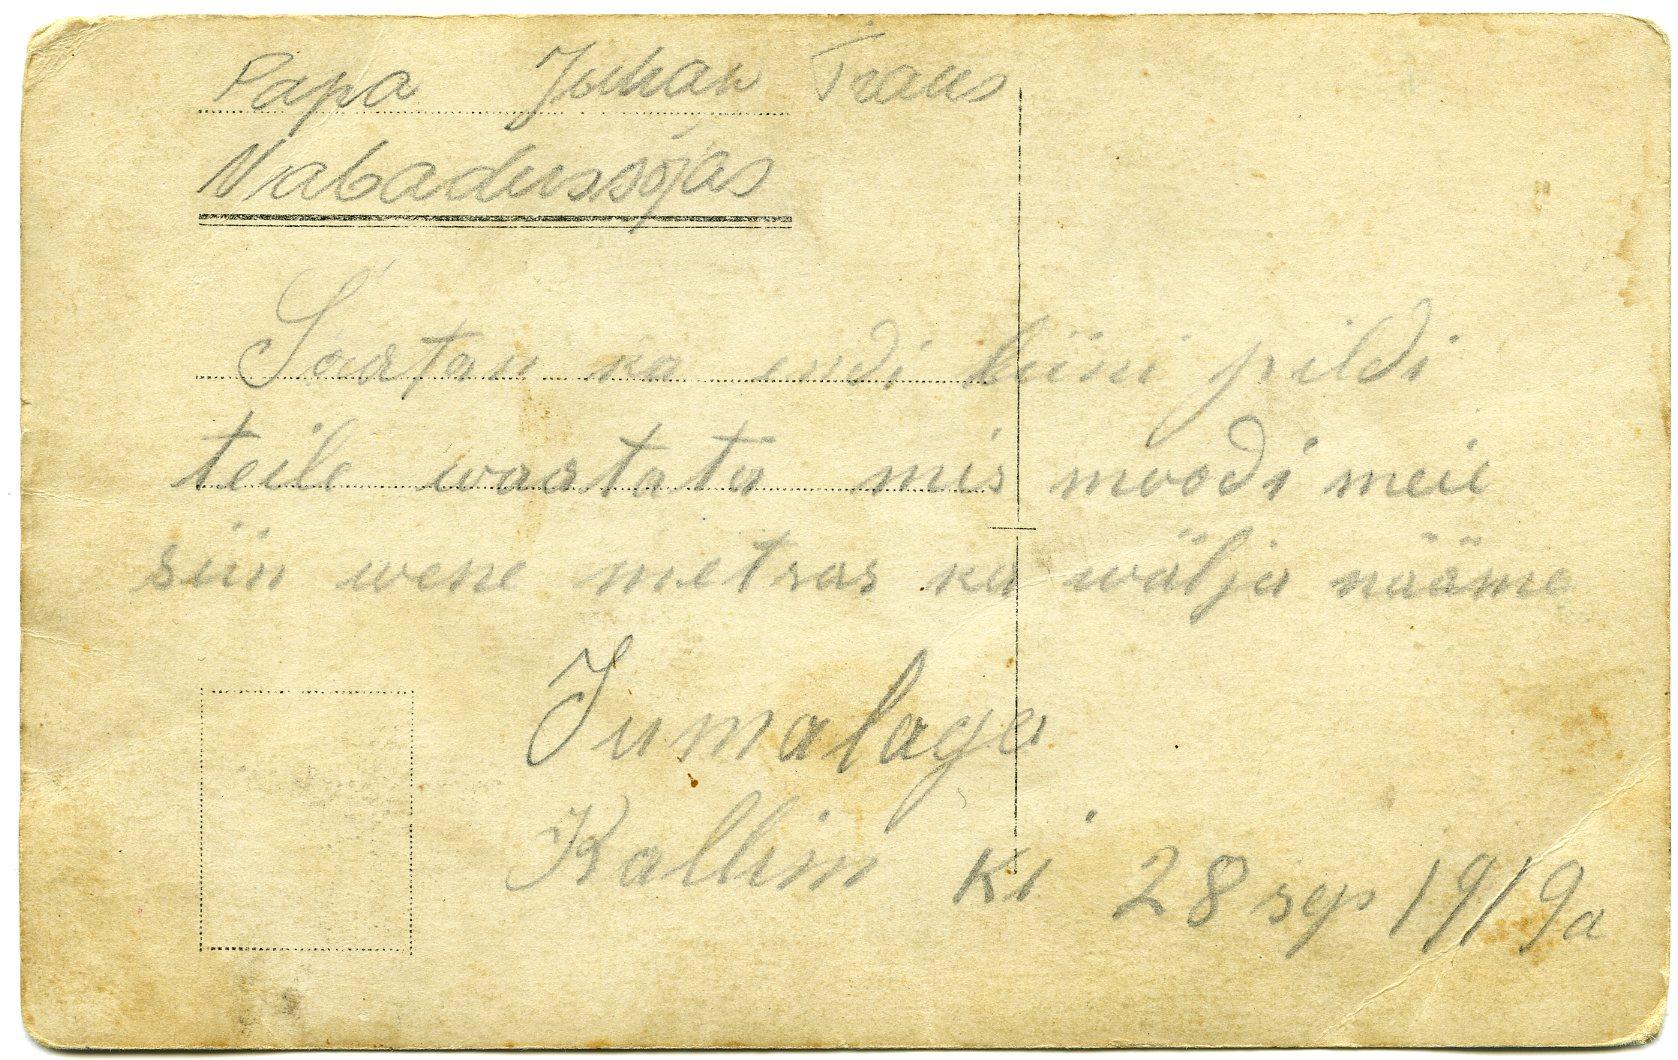 Papa Juhan Traus
Vabadussõjas
Saatan ka endi liini pildi
teile waatata mis moodi meie
siin wene metsas ka wälja nääme
Jumalaga
Kallim Ki 28 sep 1919a